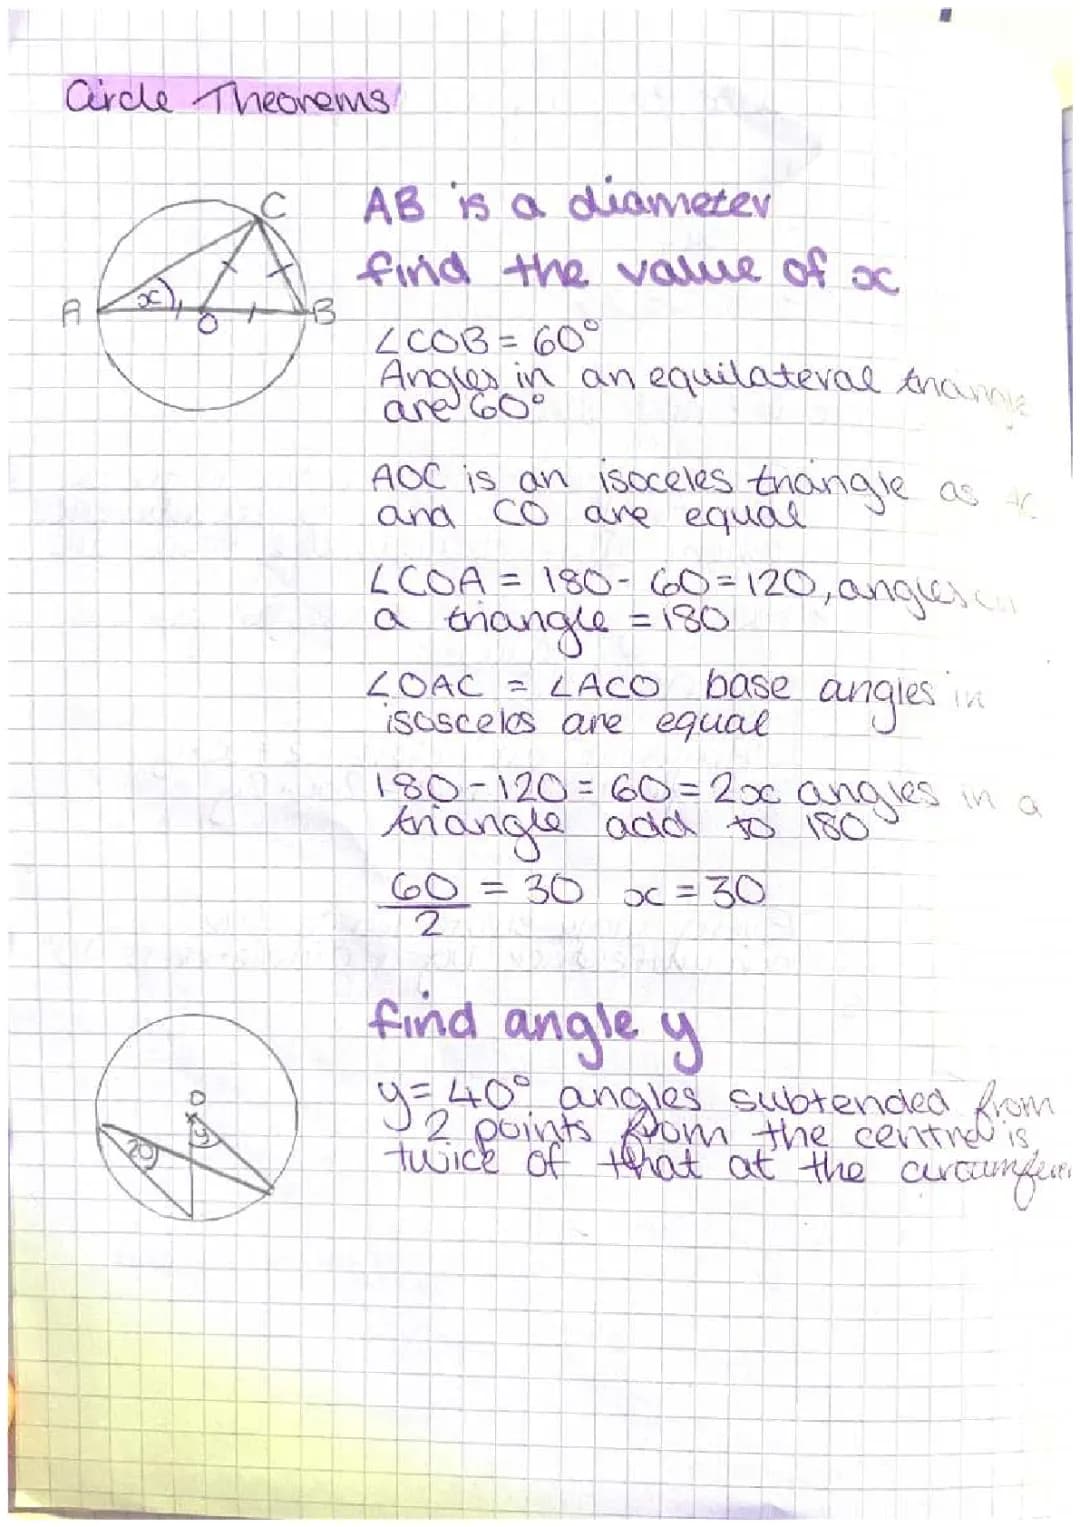 Circle Theorems
C
A
x
O
B
AB is a diameter
find the value of x
∠COB = 60°
Angles in an equilateral triangle
are 60°
AOC is an isoceles triangle as
and CO are equal
∠COA = 180 - 60 = 120, angles
a triangle = 180
∠OAC = ∠ACO base angles in
isosceles are equal
180 - 120 = 60 = 2x angles in a
triangle add to 180
60/2 = 30 x = 30
find angle y
O
y
20
y = 40° angles subtended from
2 points from the centre is
twice of that at the circumferen